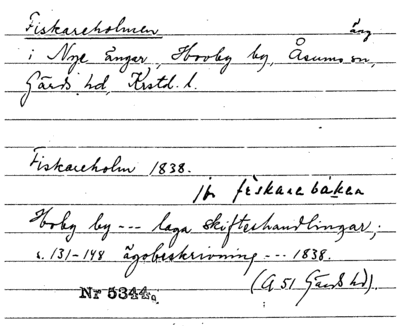 Fiskareholmen äng
i Nye ängar, Hovby by, Åsums sn,
Gärds hd, Krstd. l.
Fiskareholm 1838.
jfr fiskarebäken
Hoby by --- laga skifteshandlingar;
s. 131-148 ägobeskrivning --- 1838.
(A 51 Gärds hd).
Nr 5344a.